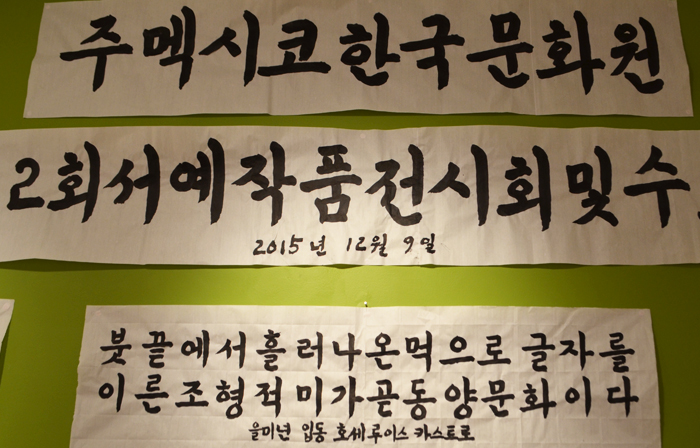 주멕시코한국문화원
2회서예작품전시회및수
2015년 12월 9일
붓끝에서흘러나온먹으로 글자를
이룬조형적미가곧동양문화이다
을미년 입동 호세루이스 카스트로